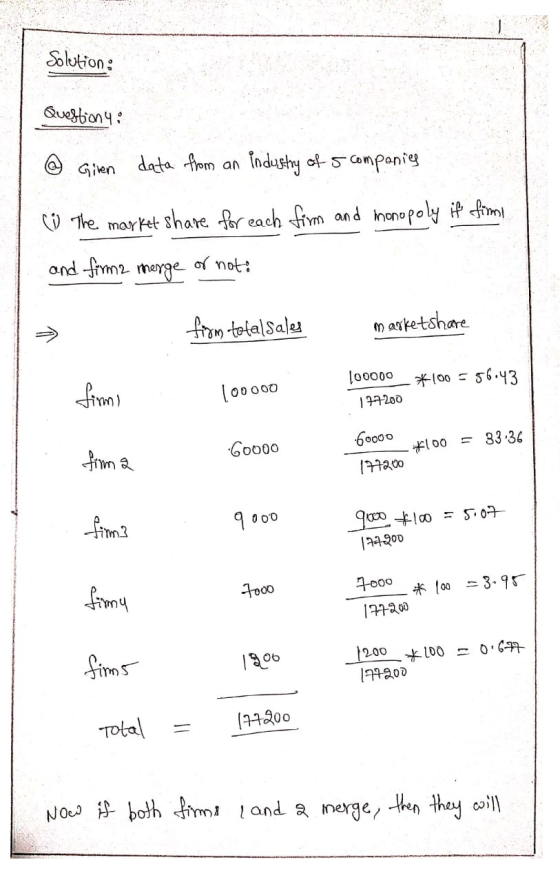 1
Solution:
Question4:
(a) Given data from an industry of 5 companies
(i) The market share for each firm and monopoly if firm1
and firm2 merge or not:
⇒ firm total sales marketshare
firm1 100000 100000/177200 *100 = 56.43
firm 2 60000 60000/177200 *100 = 33.36
firm3 9000 9000/177200 *100 = 5.07
firm4 7000 7000/177200 * 100 = 3.95
firm5 1200 1200/177200 *100 = 0.677
Total = 177200
Now if both firms 1 and 2 merge, then they will